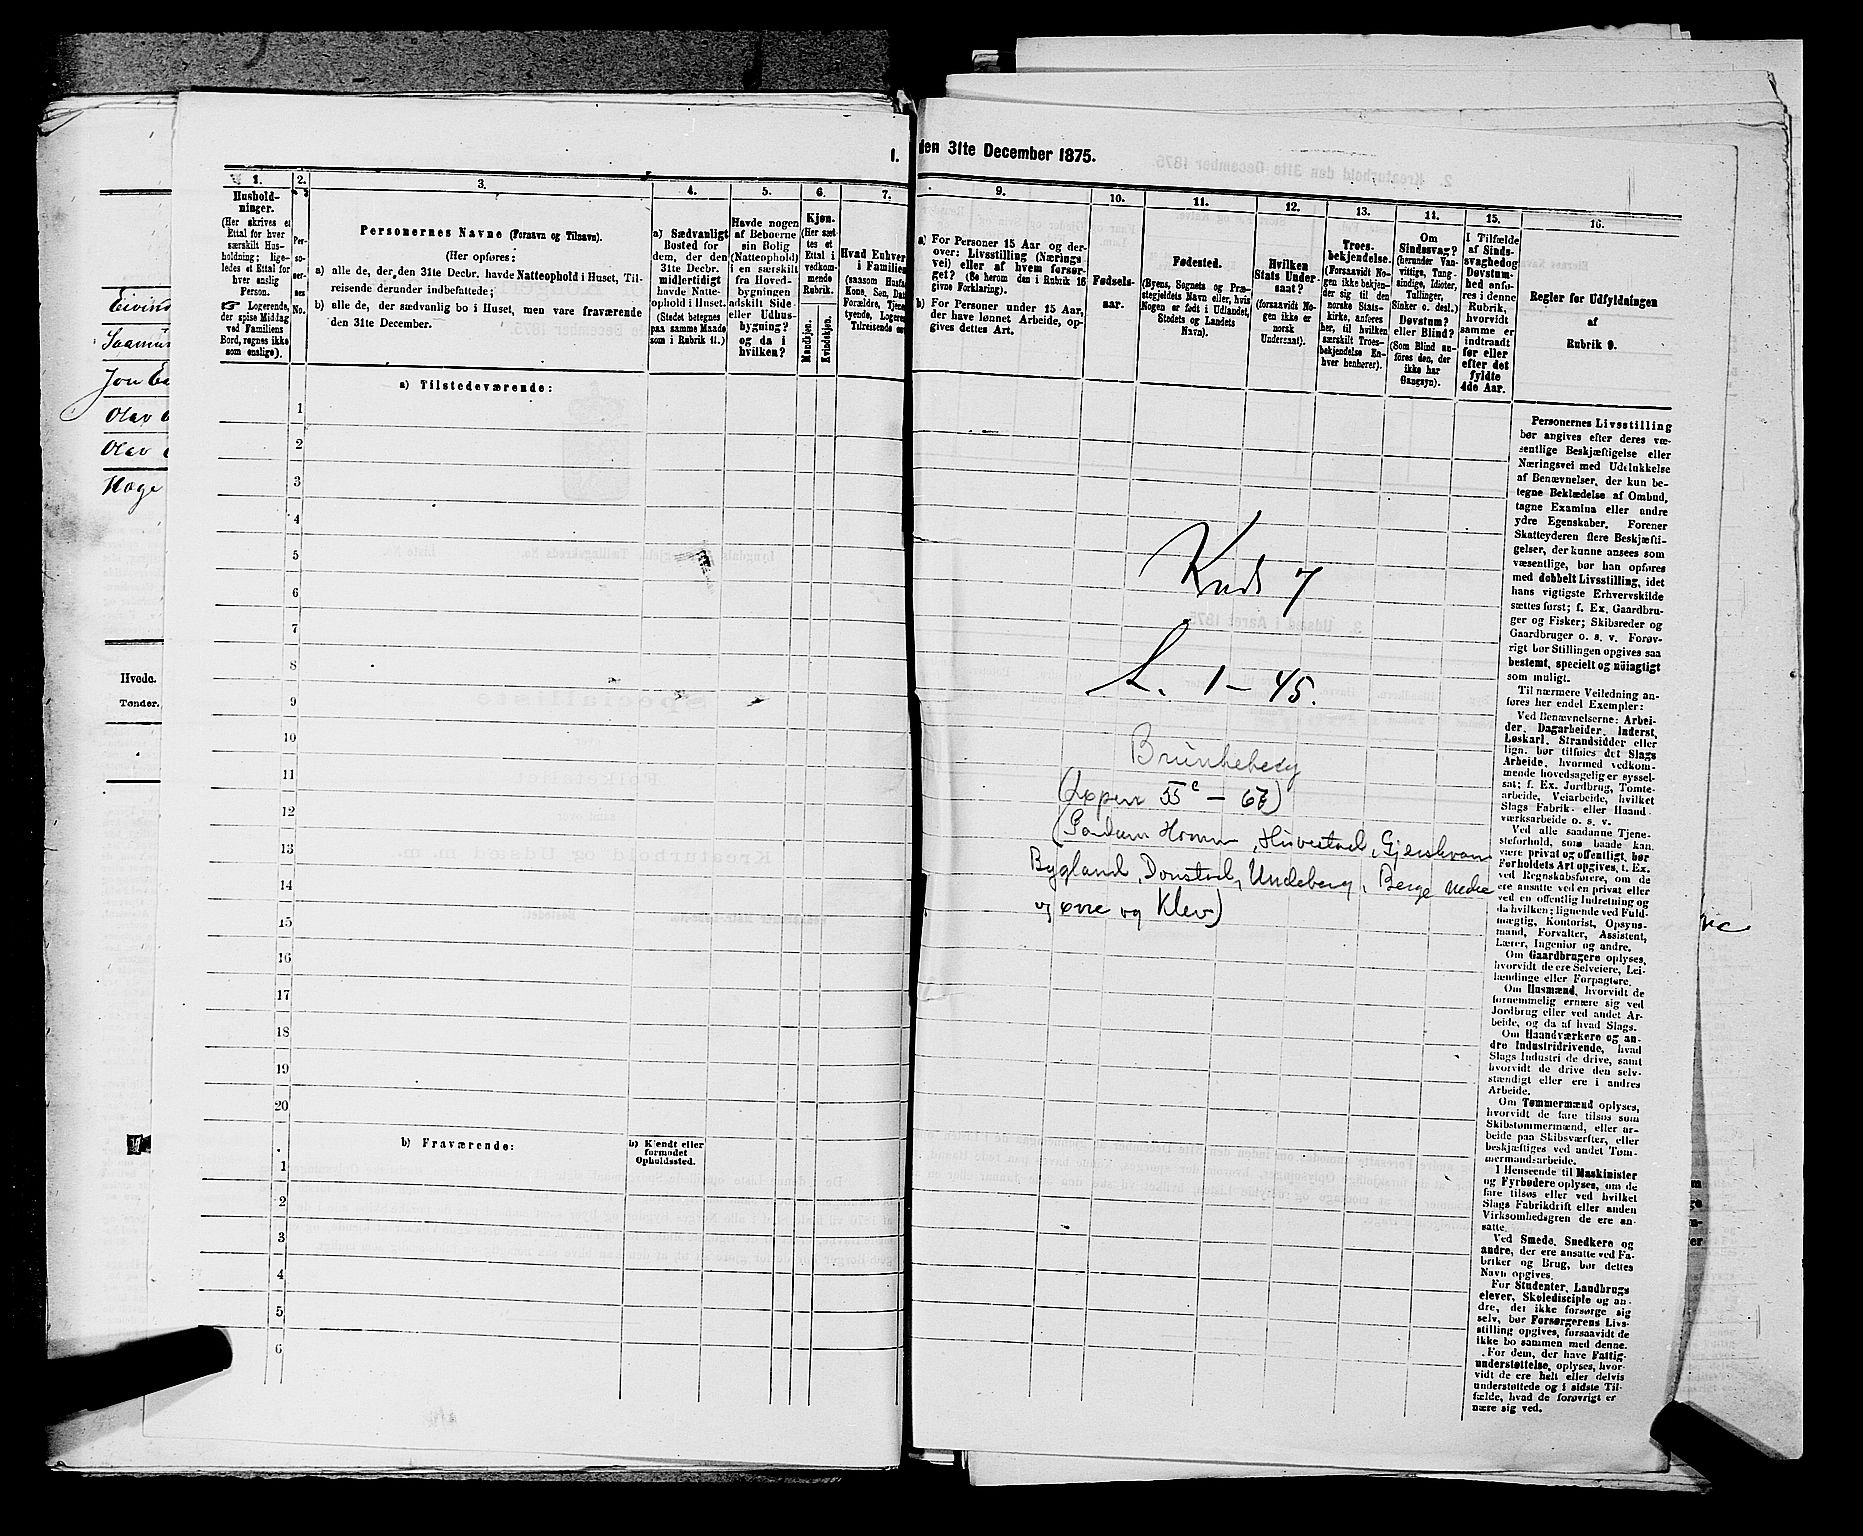 1. den 31te December 1875.
1.
Hushold-
ninger.
(Her skrives et
Ettal for hver
særskilt Hus-
holdning; lige-
ledes et Ettal for
hver enslig
Person.
☞ Logerende,
der spise Middag
ved Familiens
Bord, regnes ikke
som enslige).
2.
Per-
so-
ner-
nes
No.
3.
Personernes Navne (Fornavn og Tilnavn).
(Her opføres:
a) alle de, der den 31te Decbr. havde Natteophold i Huset, Til-
reisende derunder indbefattede;
b) alle de, der sædvanlig bo i Huset, men vare fraværende
den 31te December.
4.
a) Sædvanligt
Bosted for
dem, der den
31te Decbr.
midlertidigt
havde Natte-
ophold i Huset.
(Stedet betegnes
paa samme Maade
som i Rubrik 11.)
5.
Havde nogen
af Beboerne
sin Bolig
(Natteophold)
i en særskilt
fra Hoved-
bygningen
adskilt Side-
eller Udhus-
bygning?
og da i
hvilken?
6.
Kjøn.
(Her sæt-
tes et
Ettal i
vedkom-
mende
Rubrik.
Mandkjøn.
Kvindekjøn.
7.
Hvad Enhver
i Familien
(saasom Husfa
Kone, Søn, Dat
Forældre, Tjene
tyende, Logere
Tilreisende
9.
a) For Personer 15 Aar og der-
over: Livsstilling (Nærings
vei) eller af hvem forsør-
get? (Se herom den i Rubrik 16
givne Forklaring).
b) For Personer under 15 Aar,
der have lønnet Arbeide, op-
gives dettes Art.
10.
Fødsels-
aar.
11.
Fødested.
(Byens, Sognets og Præ-
stegjeldets Navn eller, hvis
Nogen er født i Udlandet,
Stedets og Landets
Navn).
12.
Hvilken
Stats Under-
saat?
(forsaavidt No-
gen ikke er
norsk
Undersaat).
13.
Troes-
bekjendelse.
(Forsaavidt No-
gen ikke bekjen-
der sig til den
norske Stats-
kirke, anføres
her, til hvilken
særskilt Troes-
bekjendelse En-
hver henhører).
14.
Om
Sindssvag?
(herunder Van-
vittige, Tung-
sindige, Idioter,
Tullinger,
Sinker o. desl.)
Døvstum?
eller Blind?
(Som Blind an-
føres den, der
ikke har
Gangsyn).
15.
I Tilfælde
af Sinds-
svaghed og
Døvstum-
hed anfø-
res i denne
Rubrik,
hvorvidt
samme er
indtraadt
før eller
efter det
fyldte
4de Aar.
16.
Regler for Udfyldningen
af
Rubrik 9.
a) Tilstedeværende:
1
2
3
4
5
6
7
8
9
10
11
12
13
14
15
16
17
18
19
20
b) Fraværende:
b) Kjendt eller
formodet
Opholdssted.
1
2
3
4
5
6
7
L. 1 – 45.
Brunkeberg
(Løpenr 55c – 67)
Huvestad, Gjerskvam
Bygland, Donstad, Undeberg, Berge nedre
og øvre og Klev)
Personernes Livsstilling
bør angives efter deres væ-
sentlige Beskjæftigelse eller
Næringsvei med Udelukkelse
af Benævnelser, der kun be-
tegne Beklædelse af Ombud,
tagne Examina eller andre
ydre Egenskaber. Forener
Skatteyderen flere Beskjæfti-
gelser, der kunne ansees som
væsentlige, bør han opføres
med dobbelt Livsstilling, idet
hans vigtigste Erhvervskilde
sættes først; f. Ex. Gaardbru-
ger og Fisker; Skibsreder og
Gaardbruger o. s. v. Forøv-
rigt bør Stillingen opgives saa
bestemt, specielt og nøiagtigt
som muligt.
Til nærmere Veiledning an-
føres her endel Exempler:
Ved Benævnelserne: Arbei-
der, Dagarbeider, Inderst,
Løskarl, Strandsidder eller
lign. bør tilføies det Slags
Arbeide, hvormed vedkom-
mende hovedsagelig er syssel-
sat; f. Ex. Jordbrug, Tomte-
arbeide, Veiarbeide, hvilket
Slags Fabrik- eller Haand-
værksarbeide o. s. v.
Ved alle saadanne Tjene-
steforhold, som baade kan
være privat og offentligt, bør
Forholdets Art opgives, t. Ex.
ved Regnskabsførere, om de
ere ansatte ved en privat eller
ved en offentlig Indretning og
da hvilken; lignende ved Fuld-
mægtig, Kontorist, Opsyns-
mand, Forvalter, Assistent,
Lærer, Ingeniør og andre.
Om Gaardbrugere oplyses,
hvorvidt de ere Selveiere, Lei-
lændinge eller Forpagtere.
Om Husmænd, hvorvidt de
fornemmelig ernære sig ved
Jordbrug eller ved andet Ar-
beide, og da af hvad Slags.
Om Haandværkere og an-
dre Industridrivende, hvad
Slags Industri de drive, samt
hvorvidt de drive den selv-
stændigt eller ere i andres
Arbeide.
Om Tømmermænd oplyses,
hvorvidt de fare tilsøs som
Skibstømmermænd, eller ar-
beide paa Skibsværfter, eller
beskjæftiges ved andet Tøm-
mermandsarbeide.
I Henseende til Maskinister
og Fyrbødere oplyses, om de
fare tilsøs eller ved hvilket
Slags Fabrikdrift eller anden
Virksomhedsgren de ere an-
satte.
Ved Smede, Snedkere og
andre, der ere ansatte ved Fa-
briker og Brug, bør dettes
Navn opgives.
For Studenter, Landbrugs
elever, Skoledisciple og an-
dre, der ikke forsørge sig
selv, bør Forsørgerens Livs-
stilling opgives, forsaavidt de
ikke bo sammen med denne.
For dem, der have Fattig-
understøttelse, oplyses, hvor-
vidt de ere helt eller delvis
understøttede og i sidste Til-
fælde, hvad de forøvrigt er-
nære sig ved.
Eivind
Jon
Olav
Olav
Hæge
Hvede.
Tønder.